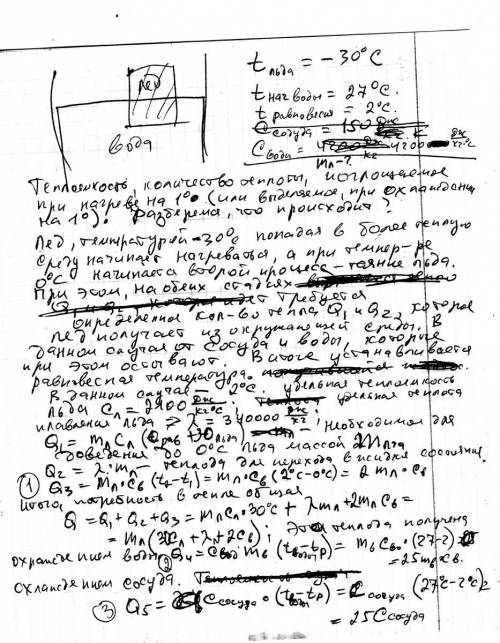 лёд
вода
t льда = -30°C
t нач воды = 27°C.
t равновесия = 2°C.
C сосуда = 150 Дж/К
C воды = 4200 Дж/кг°C
mл-?
Теплоёмкость, количество теплоты, поглощаемое
при нагреве на 1° (или выделяемое, при охлаждении
на 1°). Разберемся, что происходит?
Лед, температурой -30°C попадая в более теплую
среду начинает нагреваться, а при темпер-ре
0°C начинается второй процесс - таяние льда.
При этом, на обеих стадиях
требуется
определенное кол-во тепла Q1 и Q2, которое
лед получает из окружающей среды. В
данном случае от сосуда и воды, которые
при этом остывают. В итоге устанавливается
равновесная температура.
В данном случае - 2°C. удельная теплоемкость
льда Cл = 2100 Дж/кг°C; удельная теплота
плавления льда λ = 340000 Дж/кг; необходимое для
Q1 = mл Cл
доведения до 0°C льда массой mльда
Q2 = λ·mл - теплота для перехода в жидкое состояние.
① Q3 = mл·Cв (tк-t1) = mл·Cв (2°C-0°C) = 2 mл·Cв
Итого, потребность в тепле общая
Q = Q1 + Q2 + Q3 = mл Cл·30°C + λmл + 2mл Cв =
= mл (30Cл + λ + 2Cв); Эта теплота получена
охлаждением воды ② Q4 = Cвод mв (tв-tр) = mв Cво·(27-2) =
= 25mв Cв.
охлаждением сосуда.
③ Q5 = Cсосуда·(tводы-tр) = Cсосуда (27°C-2°C) =
= 25 Cсосуда